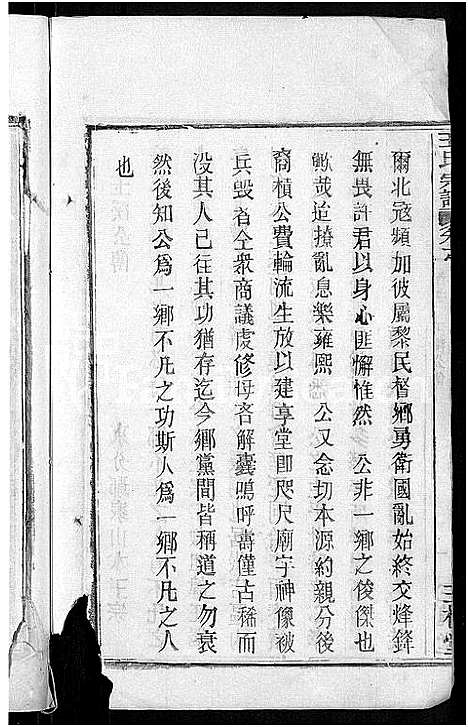 爾北寇頻加彼屬黎民督鄉勇衛國亂始終交烽鋒
無畏許君以身心匪懈惟然　公非一鄉之俊傑也
歟哉迨撩亂息樂雍熙　公又念切本源約親分似
裔積公費輪流生放以建享堂即咫尺廟宇神像被
兵毀者仝衆商議虔修毋吝解囊嗚呼壽僅古稀而
没其人已往其功猶存迄今鄉黨間皆稱道之勿衰
然後知公爲一鄉不凡之功斯人爲一鄉不凡之人
也
王氏宗譜
三槐堂